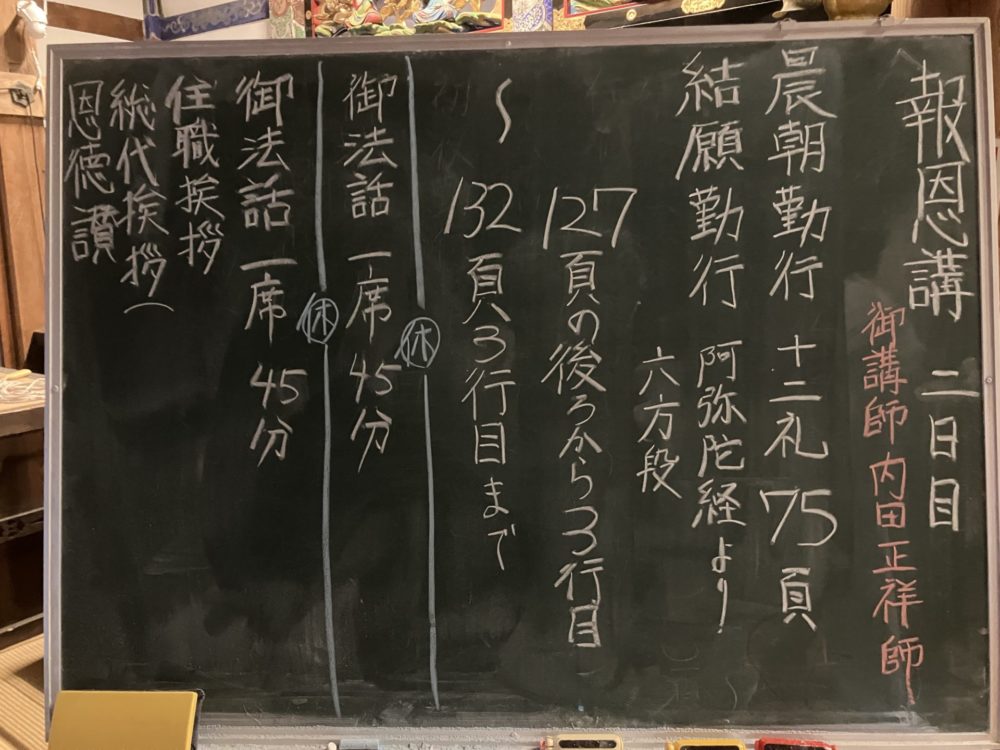 報恩講 二日目
御講師 内田正祥師
晨朝勤行 十二礼 75頁
結願勤行 阿弥陀経より
六方段
127頁の後ろから3行目
〜132頁3行目まで
休
御法話 一席 45分
休
御法話 一席 45分
住職挨拶
総代挨拶(
恩徳讃